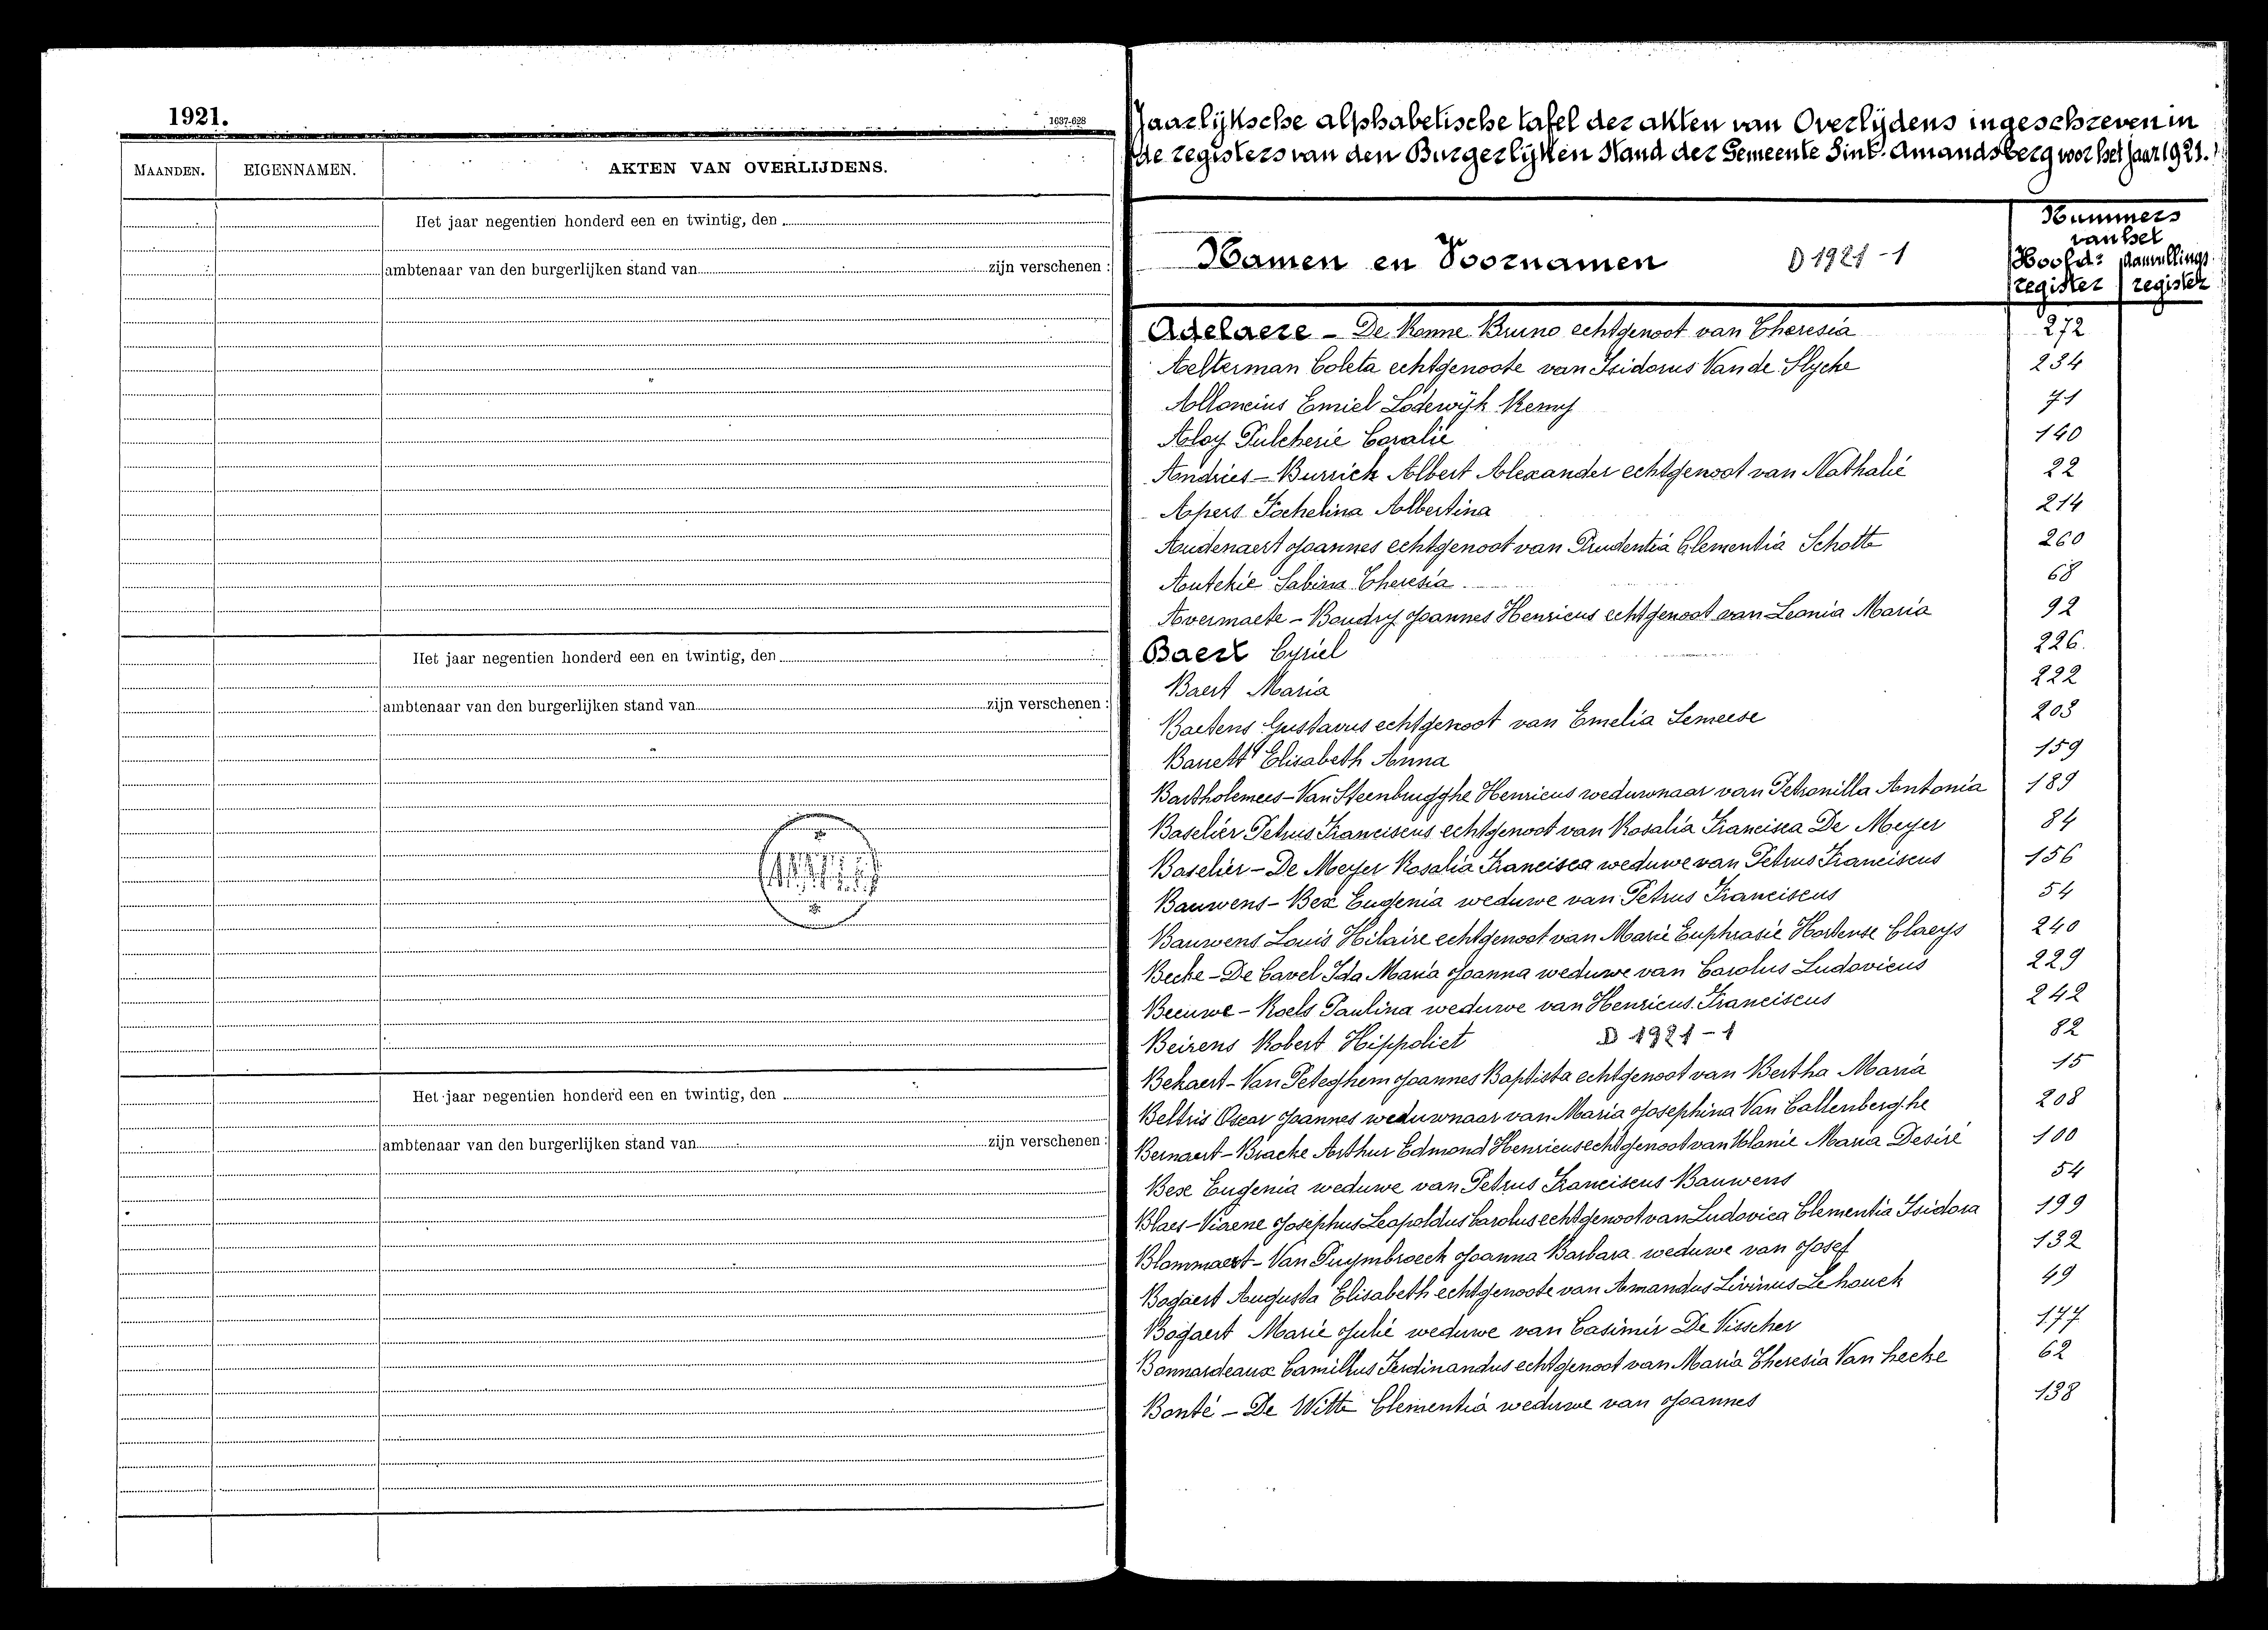 1921.
1637-628
MAANDEN. EIGENNAMEN. AKTEN VAN OVERLIJDENS.
Het jaar negentien honderd een en twintig, den
ambtenaar van den burgerlijken stand van zijn verschenen :
Het jaar negentien honderd een en twintig, den
ambtenaar van den burgerlijken stand van zijn verschenen :
Het jaar negentien honderd een en twintig, den
ambtenaar van den burgerlijken stand van zijn verschenen :
Jaarlijksche alphabetische tafel der akten van Overlijdens ingeschreven in
de registers van den Burgerlijken Stand der Gemeente Sint-Amandsberg voor het jaar 1921.
Namen en Voornamen D 1921-1
Nummers
van het
Hoofd- Aanvullings
register register
Agelaere - De Bruno echtgenoot van Theresia 272
Aelterman Coleta echtgenoote van Isidorus Van de Slycke 234
Alloncius Emiel Lodewijk Remy 71
Aloy Pulcherie Coralie 140
Andries - Burrick Albert Alexander echtgenoot van Nathalie 22
Apers Jochelina Albertina 214
Audenaert Joannes echtgenoot van Prudentia Clementia Schotte 260
Autekie Sabina Theresia 68
Avermaete - Baudry Joannes Henricus echtgenoot van Leonia Maria 92
Baert Cyriel 226.
Baert Maria 222
Baetens Gustavus echtgenoot van Emelia Lemeese 203
Elisabeth Anna 159
Bartholemees - Van Steenbrugghe Henricus weduwnaar van Petronilla Antonia 189
Baselier Petrus Franciscus echtgenoot van Rosalia Francisca De Meyer 84
Baselier - De Meyer Rosalia Francisca weduwe van Petrus Franciscus 156
Bauwens - Bex Eugenia weduwe van Petrus Franciscus 54
Bauwens Louis Hilaire echtgenoot van Marie Euphrasie Hortense Claeys 240
Becke - De Cavel Ida Maria Joanna weduwe van Carolus Ludovicus 229
Beeuwe - Roels Paulina weduwe van Henricus Franciscus 242
Beirens Robert Hippoliet D 1921-1 82
Bekaert - Van Peteghem Joannes Baptista echtgenoot van Bertha Maria 15
Beltris Oscar Joannes weduwnaar van Maria Josephina Van Callenberghe 208
Bernaert - Bracke Arthur Edmond Henricus echtgenoot van Melanie Maria Desiré 100
Bese Eugenia weduwe van Petrus Franciscus Bauwens 54
Blaes - Viaene Josephus Leopoldus Carolus echtgenoot van Ludovica Clementia Isidora 199
Blommaert - Van Puymbroeck Joanna Barbara weduwe van Josef 132
Bogaert Augusta Elisabeth echtgenoote van Amandus Livinus Lehouck 49
Bogaert Marie Julie weduwe van Casimir De Visscher 177
Bonnardeaux Camillus Ferdinandus echtgenoot van Maria Theresia Van hecke 62
Bonté - De Witte Clementia weduwe van Joannes 138